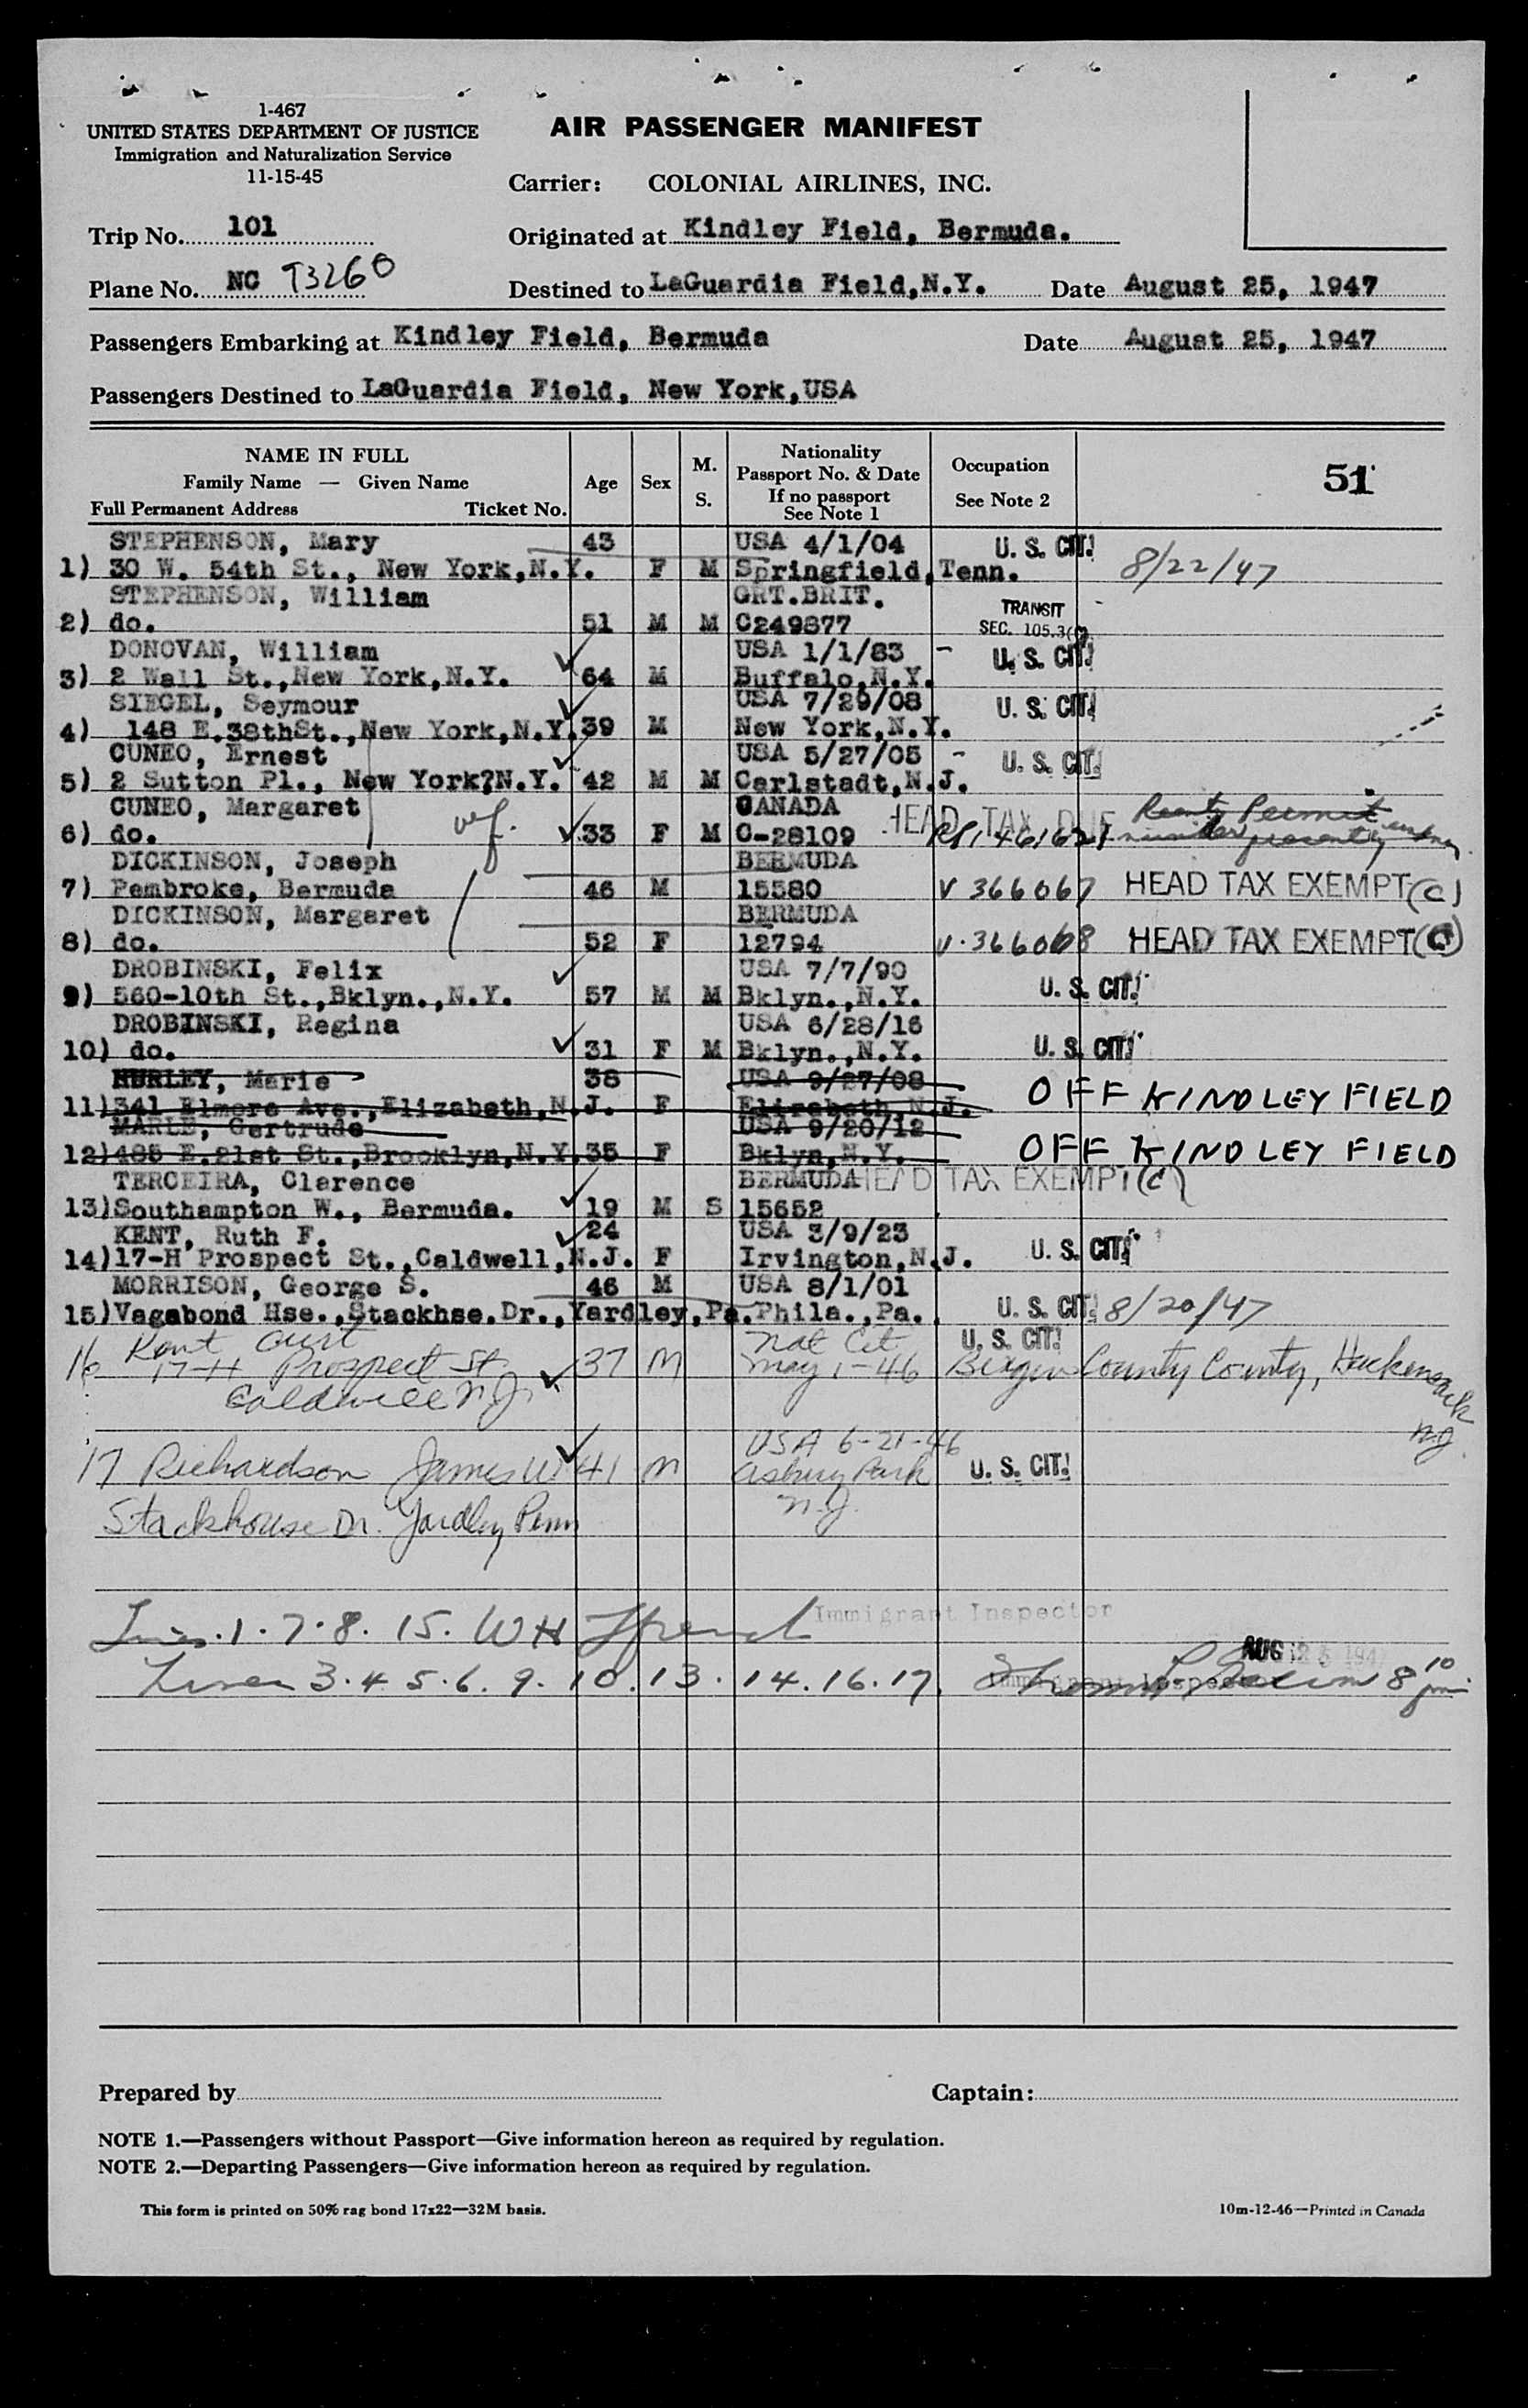 1-467
UNITED STATES DEPARTMENT OF JUSTICE
Immigration and Naturalization Service
11-15-45
AIR PASSENGER MANIFEST
Carrier: COLONIAL AIRLINES, INC.
Trip No. 101
Originated at Kindley Field, Bermuda.
Plane No. NC 93260
Destined to LaGuardia Field, N.Y. Date August 25, 1947
Passengers Embarking at Kindley Field, Bermuda Date August 25, 1947
Passengers Destined to LaGuardia Field, New York, USA
NAME IN FULL
Family Name — Given Name
Full Permanent Address Ticket No.
Age
Sex
M.
S.
Nationality
Passport No. & Date
If no passport
See Note 1
Occupation
See Note 2
51
STEPHENSON, Mary 43 USA 4/1/04 U. S. CIT.
1) 30 W. 54th St., New York, N.Y. F M Springfield, Tenn. 8/22/47
STEPHENSON, William GRT.BRIT. TRANSIT
2) do. 51 M M C249877 SEC. 105.3
DONOVAN, William USA 1/1/83 U. S. CIT.
3) 2 Wall St., New York, N.Y. 64 M Buffalo, N.Y.
SIEGEL, Seymour USA 7/29/08 U. S. CIT.
4) 148 E.38thSt., New York, N.Y. 39 M New York, N.Y.
CUNEO, Ernest USA 5/27/05 U. S. CIT.
5) 2 Sutton Pl., New York?N.Y. 42 M M Carlstadt, N.J.
CUNEO, Margaret CANADA HEAD TAX DUE Reentry Permit
6) do. ref. 33 F M C-28109 RP1461621
DICKINSON, Joseph BERMUDA
7) Pembroke, Bermuda 46 M 15580 V 366067 HEAD TAX EXEMPT (C)
DICKINSON, Margaret BERMUDA
8) do. 52 F 12794 V.366068 HEAD TAX EXEMPT (C)
DROBINSKI, Felix USA 7/7/90
9) 560-10th St., Bklyn., N.Y. 57 M M Bklyn., N.Y. U. S. CIT.
DROBINSKI, Regina USA 6/28/16
10) do. 31 F M Bklyn., N.Y. U. S. CIT.
HURLEY, Marie 38 USA 9/27/08
11) 341 Elmore Ave., Elizabeth, N.J. F Elizabeth, N.J. OFF KINDLEY FIELD
MARLE, Gertrude USA 9/20/12
12) 485 E.21st St., Brooklyn, N.Y. 35 F Bklyn, N.Y. OFF KINDLEY FIELD
TERCEIRA, Clarence BERMUDA HEAD TAX EXEMPT (C)
13) Southampton W., Bermuda. 19 M S 15652
KENT, Ruth F. 24 USA 3/9/23
14) 17-H Prospect St., Caldwell, N.J. F Irvington, N.J. U. S. CIT.
MORRISON, George S. 46 M USA 8/1/01
15) Vagabond Hse., Stackhse. Dr., Yardley, Pa. Phila., Pa. U. S. CIT. 8/20/47
Kent Curt Nat Cit U. S. CIT.
16 17-H Prospect St. 37 M May 1-46 Bergen County County, Hackensack
Caldwell N.J. N.J.
USA 6-21-46
17 Richardson James W 41 M Asbury Park U. S. CIT.
N.J.
Stackhouse Dr. Yardley Penn
Lines.1.7.8.15. WH French Immigrant Inspector
AUG 25 1947
Lines 3.4 5.6. 9. 10.13.14.16.17. Immigrant Inspector 8 10 pm
Prepared by
Captain:
NOTE 1.—Passengers without Passport—Give information hereon as required by regulation.
NOTE 2.—Departing Passengers—Give information hereon as required by regulation.
This form is printed on 50% rag bond 17x22—32M basis.
10m-12-46—Printed in Canada